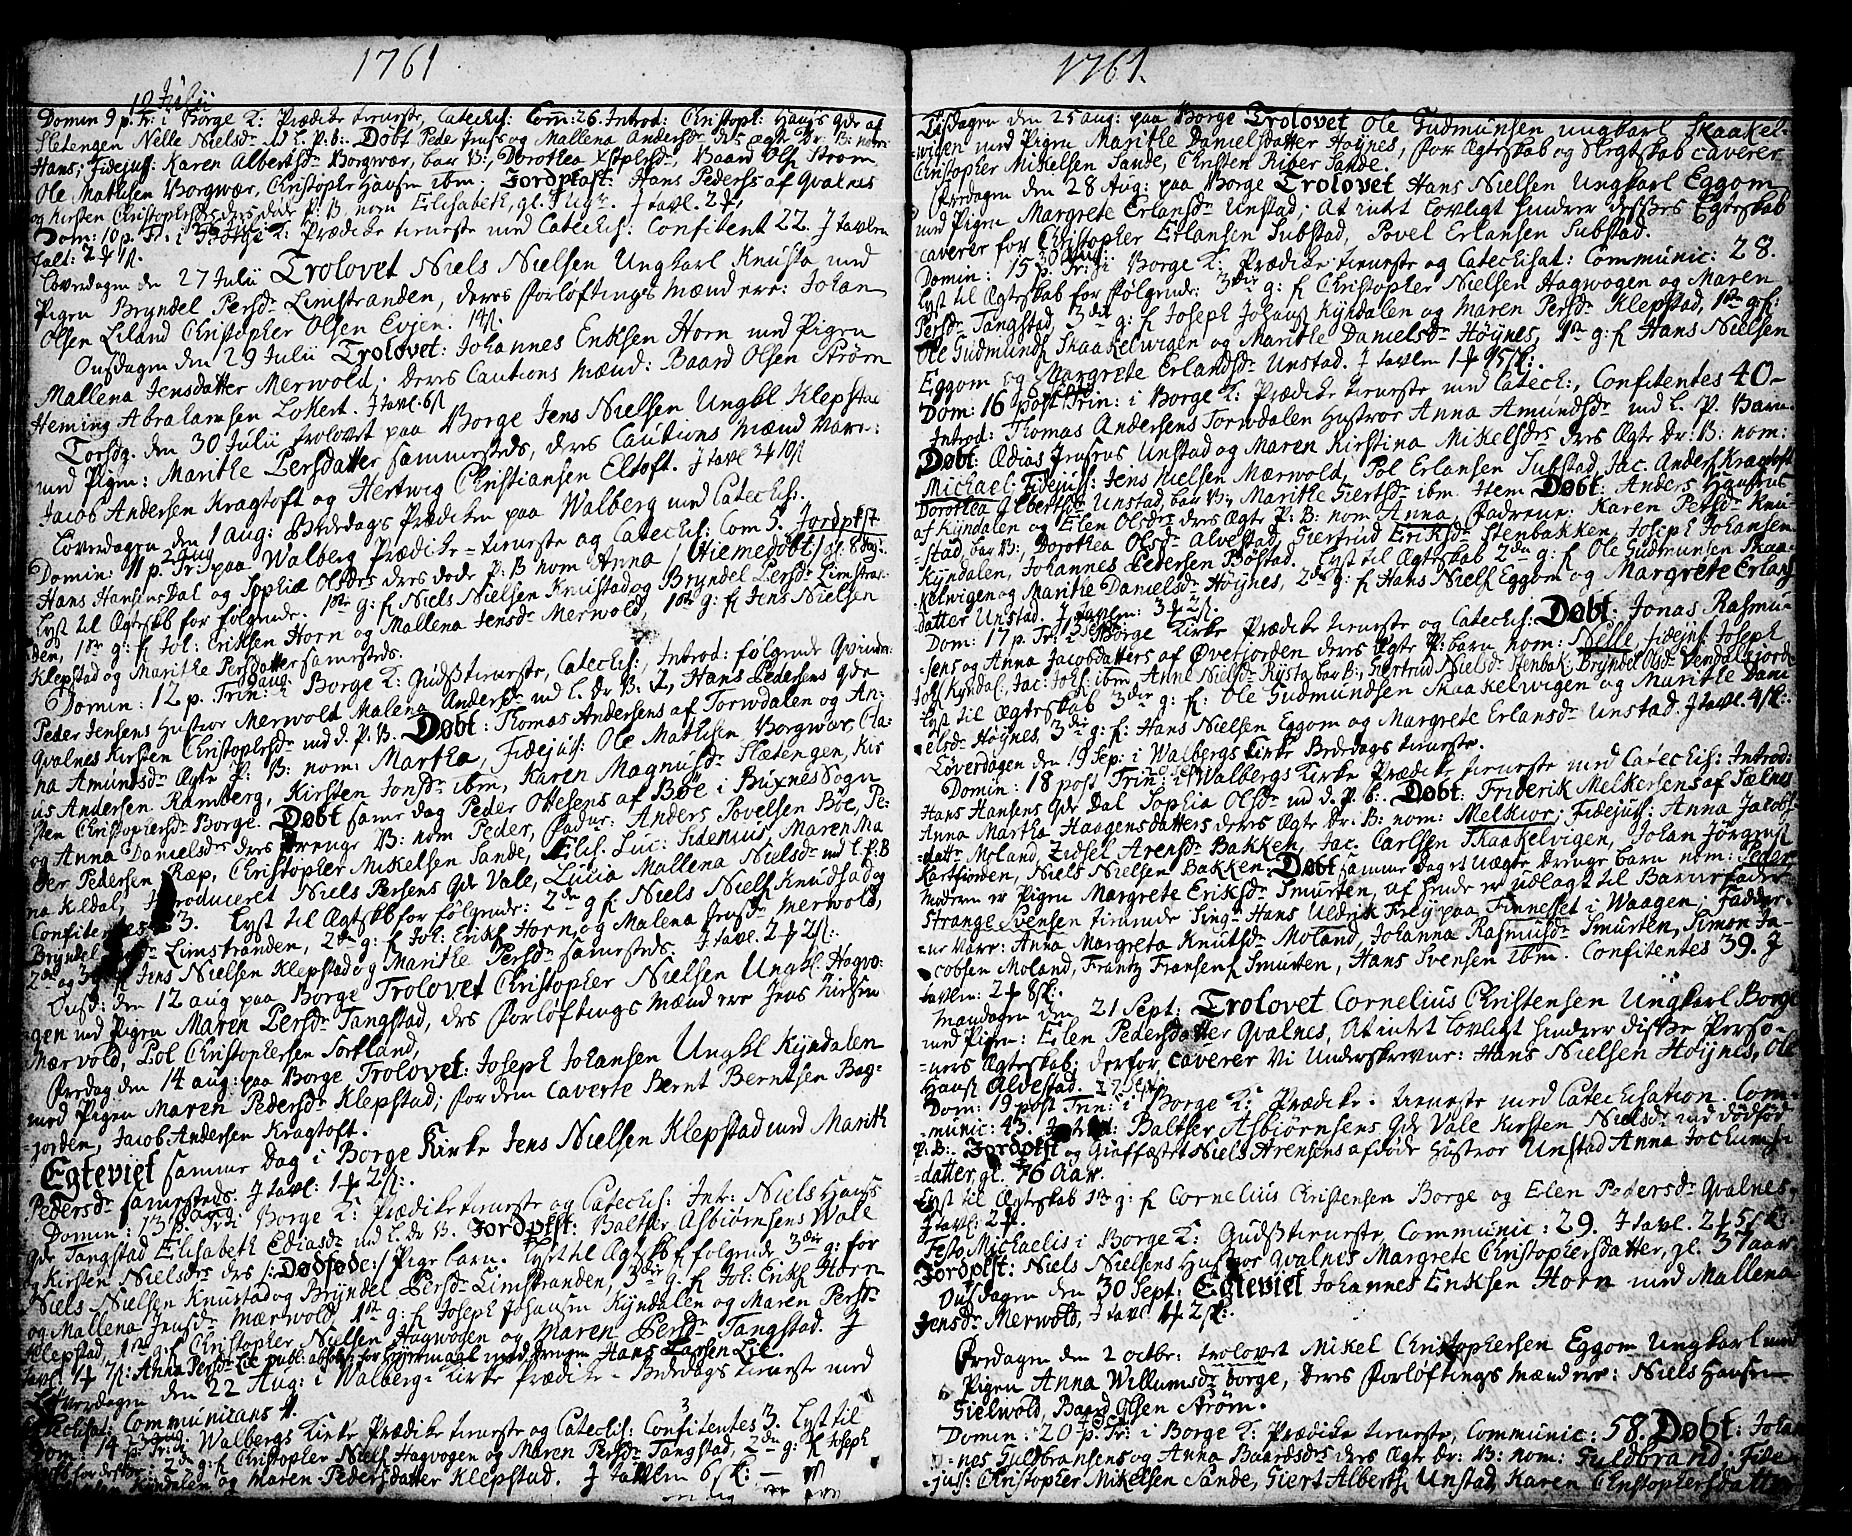 1761
12 Julii
Domin 9 p. Tr: i Borge K: Prædike tieneste, Catechis: Com: 26. Introd: Christoph: Hans qde af
Sletengen Nelle Nielsdr. Døbt Peder Jens og Mallena Andersdr des ægte Dr: B: nom
Hans; Fidejuss: Karen Albertsdr Borgwær, bar B:, Dorothea Baard Ols Strøm
Ole Mathisen Borgwær, Christopher Hansen ibm, Jordpkast: Hans Peders af Qvalnes
og Kirsten Christophersdrs ders døde P: B nom Elisabeth, gl. 3 ug. J tavl. 2
Dom: 10 p. Tr. i Borge K: Prædike tieneste med Catechis: Confitent 22. J tavlen
falt: 2
Løverdagen den 27 Julii Trolovet Niels Nielsen Ungkarl Knusta med
Pigen Bryndel Persdr Limstranden, deres Forløftings Mænd ere: Johan
Olsen Liland Christopher Olsen Evjen.
Onsdagen den 29 Julii Trolovet: Johannes Eriksen Horn med Pigen
Mallena Jensdatter Merwold; deres Cautions Mænd: Baard Olsen Strøm
Heming Abrahamsen Lokert. J tavl: 6
Torsdg. den 30 Julii trolovet paa Borge Jens Nielsen Ungkl Klepstad
med Pigen: Marithe Persdatter sammesteds, ders Cautions Mænd vare:
Jacob Andersen Kragtoft og Hertwig Christiansen Eltoft. J tavl 3 10
Løverdagen den 1 aug: Bededags Prædiken paa Walberg med Catechis:
Domin: 11 p. Tr: paa Walberg Prædike-tieneste og Catechis: Com 5. Jordpkst
2 aug
Hans Hansens Dal og Sophiæ Olsdrs deres døde P: B nom Anna / Hiemedøbt / gl. 8 dag:
Lyst til Ægteskb for følgende. 1ste g: f Niels Nielsen Knustad og Bryndel Persdr Limstran-
den, 1ste g: f Joh: Eriksen Horn og Mallena Jensdr Merwold, 1ste g: f Jens Nielsen
Klepstad og Marithe Persdatter samesteds.
Domin: 12 p. Trin: i Borge K: Gudstieneste, Catechis:, Introd: følgende Qvinder
Peder Jensens Hustroe Merwold Malena Andersdr Hans Pedersens qde
Qvalnes Kirsten Christophersdr Døbt: Thomas Andersens af Torwdalen og An-
na Amundsdr Ægte P: B: nom: Martha, Fidejus: Ole Mathisen Borgwær, Cla-
us Andersen Ramberg, Kirsten Jonsdr ibm, Karen Magnusdr Slætengen, Kir
sten Christophersdr Borge. Døbt same dag Peder Ottesens af Böe i Buxnes Sogn
og Anna Danielsdr ders drenge B: nom Peder, Fadur: Anders Povelsen Böe, Pe-
der Pedersen Ræp, Christopher Mikelsen Sande, Elis: Luc: Sidenius, Maren Ma
na Kildal, Introduceret Niels Persens qde Vale, Lucia Mallena Nielsdr
Confitentes 3. Lyst til Ægtskb for følgende: 2den g f Niels Niels Knudsad og
Bryndel Limstranden, 2den g: f Joh: Eriks Horn, og Malena Jensdr Merwold,
2den og 3die Jens Nielsen Klepstad og Marithe Persdr samesteds. J tavl. 2 2
Onsd: den 12 aug paa Borge Trolovet Christopher Nielsen Ungkl. Hagvo-
gen med Pigen Maren Persdr Tangstad, ders Forløftings mænd ere Jens Nielsen
Mærvold, Pol Christophersen Sortland,
Fredag den 14 aug: paa Borge Trolovet: Joseph Johansen Ungkl Kyndalen
med Pigen Maren Pedersdr Klepstad; for dem caverte Bernt Berntsen Bag-
jorden, Jacob Andersen Kragtoft.
Egteviet samme Dag i Borge Kirke Jens Nielsen Klepstad med Marith
Pedersdr samesteds. J tavl: 1 2
Domin: 13 p. Tr: i Borge K: Prædiketieneste og Catechis: Int: Niels Hans
qde Tangstad Elisabeth Ediasdr Jordpkst: Balthser Asbiørnsens Wale
og Kirsten Nielsdrs des /: Dødføde :/ Pige barn. Lyst til Ægtskb f følgende 3die g: for
Niels Nielsen Knustad og Bryndel Persdr Limstranden, 3die g. f Joh: Eriks Horn
og Mallena Jensdr Mærwold, 1ste g: f Joseph Johansen Kyndalen og Maren Persdr
Klepstad 1ste g: f Christopher Nielsen Hagwogen og Maren Persdr Tangstad. J
tavl 1 7 Anna Persdr Lie publ: absol: for Leyermaal med Drengen Hans Larsen Lie.
Løverdagen den 22 Aug: i Walbergs Kirke Prædike-Bededags tieneste med
Catechisat: Communicans
Dom: 14 p. Tr: i Walbergs Kirke Prædike tieneste og Catechis: Confitentes 3. Lyst til
2den g: f Christopher Niels Hagwogen og Maren Persdr Tangstad, 2den g: f Joseph
Kyndalen og Maren Pedersdatter Klepstad. J tavlen 6 sk:
1761.
Tisdagen den 25 aug: paa Borge Trolovet Ole Gudmunsen ungkarl Skaakel-
wigen med Pigen Marithe Danielsdatter Høynes, for Ægteskab og Slegtskab caverer
Christopher Mikelsen Sande, Christen Riber Sande.
Fredagen den 28 Aug: paa Borge Trolovet Hans Nielsen Ungkarl Eggom
med Pigen Margrete Erlansdr Unstad; At intet lovligt hindrer desses Egteskab
caverer for Christopher Erlansen Substad, Povel Erlansen Substad.
30 Aug:
Domin: 15 p. Tr: i Borge K: Prædike tieneste og Catechisat: Communic: 28.
Lyst til Ægteskab for Følgende: 3die g: f Christopher Nielsen Hagwogen og Maren
Persdr Tangstad, 3die g: f Joseph Johans Kyndalen og Maren Persdr Klepstad, 1ste g f:
Ole Gudmunds Skaakelwigen og Marithe Danielsdr Høynes, 1ste g: f Hans Nielsen
Eggom og Margrete Erlandsdr Unstad. J tavlen 1 15
Dom: 16 post Trin: i Borge K: Prædike tieneste med Catech:, Confitentes 40-
Introd: Thomas Andersens Torwdalen Hustroe Anna Amundsdr Barn.
Døbt: Ædias Jensens Unstad og Maren Kirstina Mikelsdrs ders Ægte Dr: B: nom:
Michael: Fidejuss: Jens Nielsen Mærwold, Pol Erlansen Substad, Jac. Anders Kragtoft
Dorothea Gbertsdr Unstad, bar B:, Marithe Giertsdr ibm. Item Døbt: Anders Hansens
af Kyndalen og Elen Olsdrs ders Ægte P: B: nom Anna, Fadrene: Karen Persdr Knu-
stad, bar B:, Dorothea Olsdr Alvestad, Giertrud Eriksdr Stenbakken, Joseph Johansen
Kyndalen, Johannes Pedersen Bøstad. Lyst til Ægteskab 2den g: f Ole Gudmunsen Skaa-
kelwigen og Marithe Danielsdr Høynes, 2den g: f Hans Niels Eggom og Margrete Erlans
datter Unstad. J tavlen: 3 2
Dom: 17 p. Tr. i Borge Kirke Prædike tieneste og Catechis: Døbt: Jonas Rasmu-
sens og Anna Jacobsdatters af Øvetfjorden ders Ægte P: barn nom: Nelle, Fidejus: Joseph
Joh: Kyndal, Jac: Joh: ibm, Anne Nielsdr Rysta bar B:, Giertrud Nielsdr Stenbak: Bryndel Olsdr Vendalsjorde
Lyst til Ægteskab 3die g: f: Ole Gudmundsen Skaakelwigen og Marithe Dani
elsdr Høynes 3die g: f: Hans Nielsen Eggom og Margrete Erlansdr Unstad. J tavl. 4
Løverdagen den 19 Sep: i Walbergs Kirke Bededags tieneste.
Domin: 18 post Trin: i Walbergs Kirke Prædike tieneste med Catechis: Introd:
Hans Hansens qde Dal Sophia Olsdr Døbt: Friderik Melkersens af Sælnes
Anna Martha Haagensdatters ders Ægte Dr: B: nom: Melkior, Fidejuss: Anna Jacobs
datter Moland, Zidsel Arensdr Bakken, Jac. Carlsen Skaakelvigen, Johan Jørgens
Kartfiorden, Niels Nielsen Bakken. Døbt samme dag et Uægte drenge barn nom: Peder
Moderen er Pigen Margrete Eriksdr Smurten, af hende er udlagt til Barnefader
Strange Svensen tienende Sing: Hans Uldrik Frey paa Finnesset i Waagen; Fadder-
ne vare: Anna Margreta Knutsdr Moland, Johanna Rasmusdr Smurten, Simon Ja-
cobsen Moland, Frantz Fransen Smurten, Hans Svensen ibm. Confitentes 39. J
tavlen: 2 8
Mandagen den 21 Sept: Trolovet Cornelius Christensen Ungkarl Borge
med Pigen: Elen Pedersdatter Qvalnes, At intet lovligt hindrer disse Perso-
ners Ægteskab; derfor caverer Vi Underskrevne: Hans Nielsen Høynes, Ole
Hans Alvestad. 27 Sept
Dom: 19 post Trin: i Borge K: Prædike-tieneste med Catechisation. Com-
munic: 43. Balthser Asbiørnsens qde Vale Kirsten Nielsdr med dødfød
P: B: Jordpkst og Giæffæstet Niels Arensens afdøde Hustroe Unstad Anna Jochums
datter, gl. 76 Aar.
Lyst til Ægteskab 1ste g: f Cornelius Christensen Borge og Elen Pedersdr Qvalnes.
J tavl: 2
Festo Michaelis i Borge K: Gudstieneste, Communic: 29. J tavl. 2 5 sk:
Jordpkst: Niels Nielsens Hustroe Qvalnes Margrete Christophersdatter, gl. 37 aar.
Onsdagen den 30 Sept: Egteviet Johannes Eriksen Horn med Mallena
Jensdr Merwold, J tavl 1 2
Fredagen den 2 octbr: trolovet Mikel Christophersen Eggom Ungkarl med
Pigen Anna Willumsdr borge, ders Forløftings mænd ere: Niels Hansen
Gielwold, Baard Olsen Strøm.
Domin: 20 p. Tr: i Borge K: Prædike tieneste, Communic: 58. Døbt: Johan
nes Guldbransens og Anna Baardsdrs ders Ægte Dr: B: nom: Guldbrand, Fide-
jus: Christopher Mikelsen Sande, Giert Alberts Unstad, Karen Christophersdatter